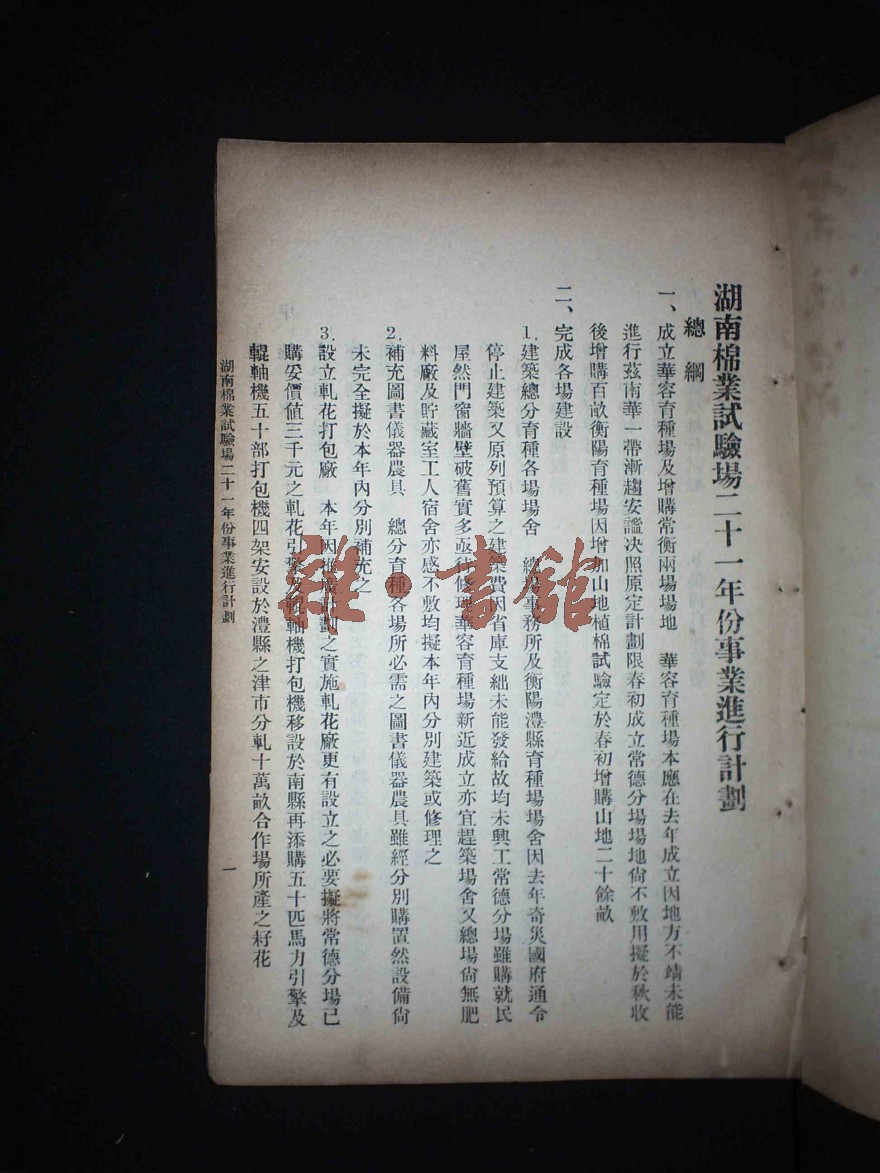 湖南棉業試驗場二十一年份事業進行計劃
總綱
一、成立華容育種場及增購常衡兩場場地　華容育種場本應在去年成立因地方不靖未能
進行茲南華一帶漸趨安謐决照原定計劃限春初成立常德分場場地尙不敷用擬於秋收
後增購百畝衡陽育種場因增加山地植棉試驗定於春初增購山地二十餘畝
二、完成各場建設
1.建築總分育種各場場舍　總場事務所及衡陽澧縣育種場場舍因去年奇災國府通令
停止建築又原列預算之建築費因省庫支絀未能發給故均未興工常德分場雖購就民
屋然門窗牆壁破舊實多亟待修理華容育種場新近成立亦宜趕築場舍又總場尙無肥
料廠及貯藏室工人宿舍亦感不敷均擬本年內分別建築或修理之
2.補充圖書儀器農具　總分育種各場所必需之圖書儀器農具雖經分別購置然設備尙
未完全擬於本年內分別補充之
3.設立軋花打包廠　本年因推廣計劃之實施軋花廠更有設立之必要擬將常德分場已
購妥價値三千元之軋花引擎及輥軸機打包機移設於南縣再添購五十匹馬力引擎及
輥軸機五十部打包機四架安設於澧縣之津市分軋十萬畝合作場所產之籽花
湖南棉業試驗場二十一年份事業進行計劃
一
雜·書館